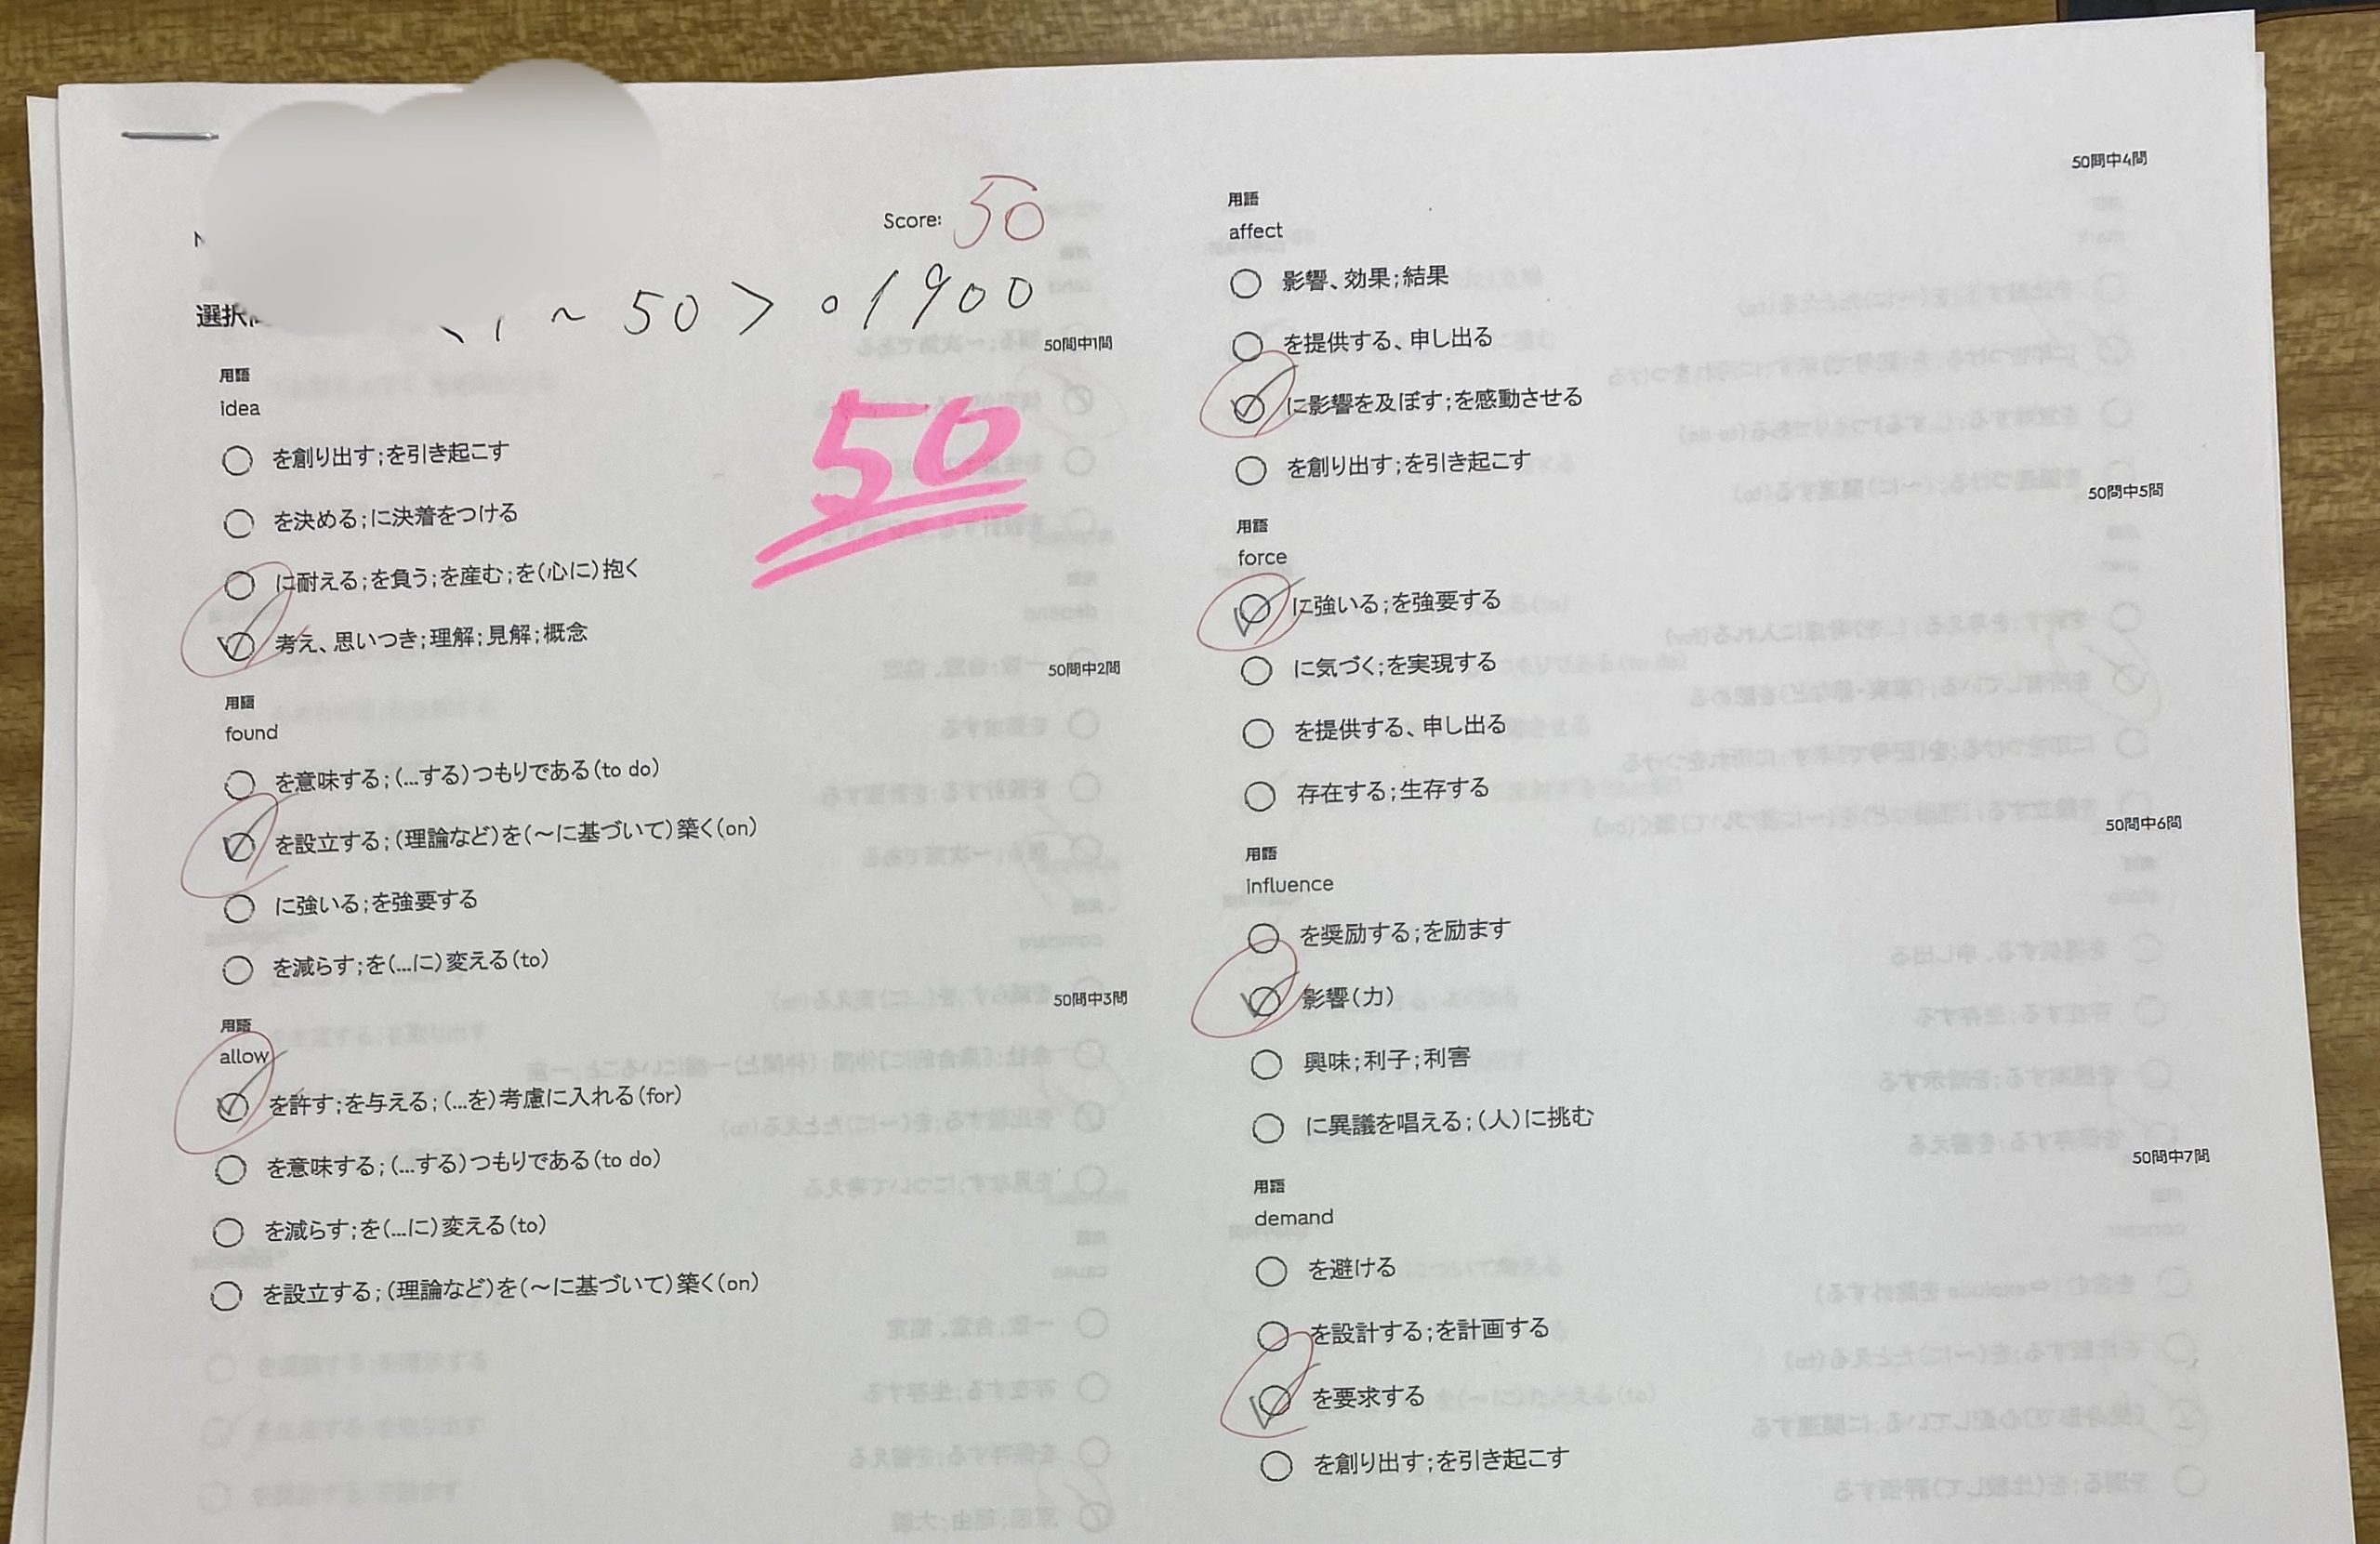 Score: 50
選択
1 ~ 50 > ○1900
50
50問中1問
用語
idea
を創り出す;を引き起こす
を決める;に決着をつける
に耐える;を負う;を産む;を(心に)抱く
考え、思いつき;理解;見解;概念
50問中2問
用語
found
を意味する;(...する)つもりである(to do)
を設立する;(理論など)を(~に基づいて)築く(on)
に強いる;を強要する
を減らす;を(...に)変える(to)
50問中3問
用語
allow
を許す;を与える;(...を)考慮に入れる(for)
を意味する;(...する)つもりである(to do)
を減らす;を(...に)変える(to)
を設立する;(理論など)を(~に基づいて)築く(on)
50問中4問
用語
affect
影響、効果;結果
を提供する、申し出る
に影響を及ぼす;を感動させる
を創り出す;を引き起こす
50問中5問
用語
force
に強いる;を強要する
に気づく;を実現する
を提供する、申し出る
存在する;生存する
50問中6問
用語
influence
を奨励する;を励ます
影響(力)
興味;利子;利害
に異議を唱える;(人)に挑む
50問中7問
用語
demand
を避ける
を設計する;を計画する
を要求する
を創り出す;を引き起こす